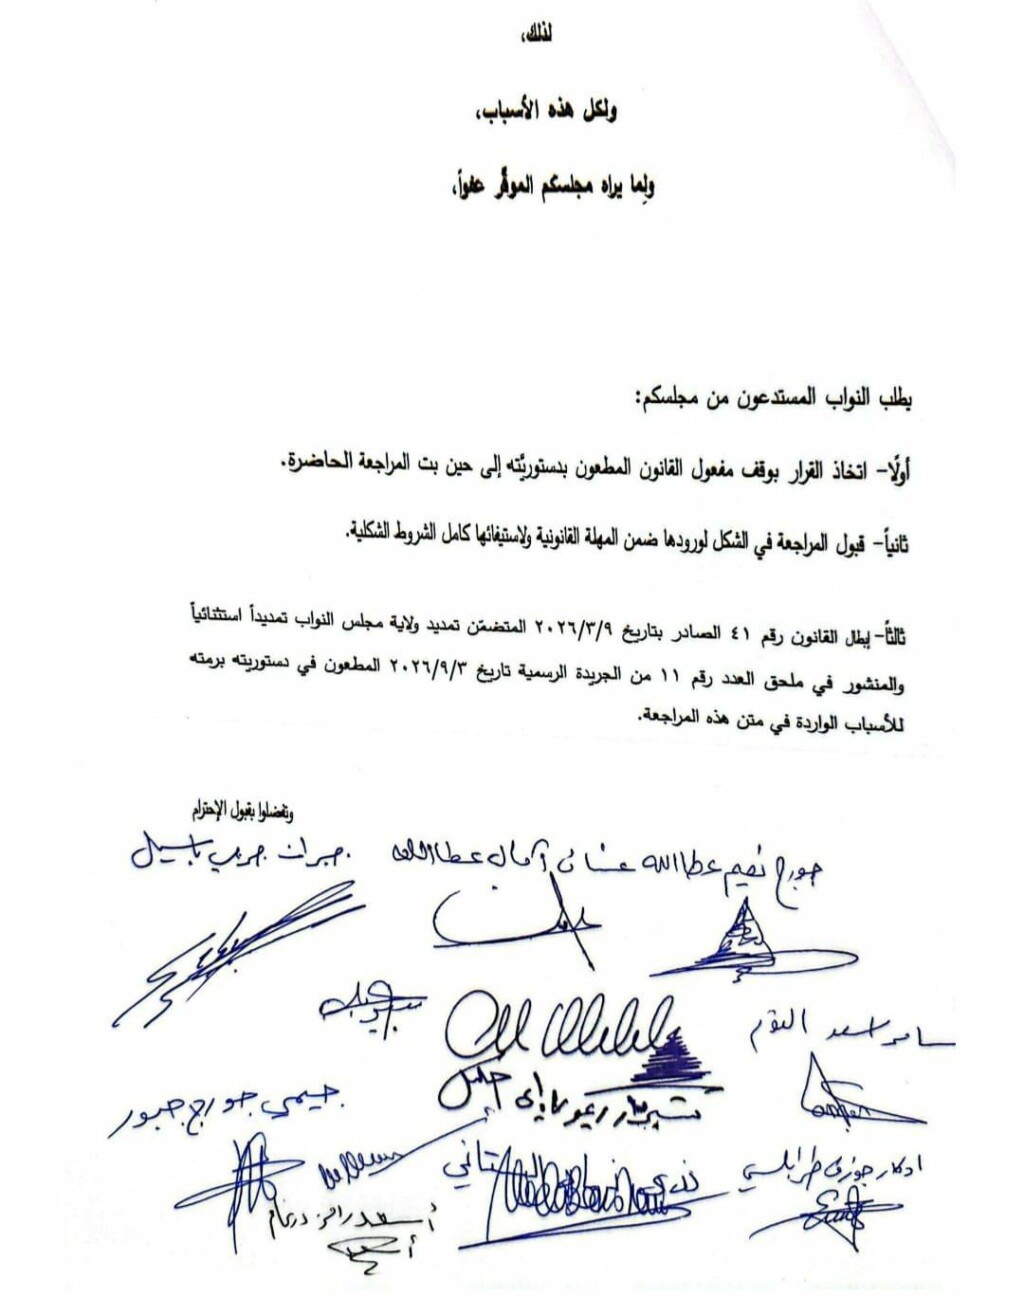 لذلك،
ولكل هذه الأسباب،
ولِما يراه مجلسكم الموقَّر عفواً،
يطلب النواب المستدعون من مجلسكم:
أولًا- اتخاذ القرار بوقف مفعول القانون المطعون بدستوريّته إلى حين بت المراجعة الحاضرة.
ثانياً- قبول المراجعة في الشكل لورودها ضمن المهلة القانونية ولاستيفائها كامل الشروط الشكلية.
ثالثاً- إبطال القانون رقم ٤١ الصادر بتاريخ ٢٠٢٦/٣/٩ المتضمّن تمديد ولاية مجلس النواب تمديداً استثنائياً
والمنشور في ملحق العدد رقم ١١ من الجريدة الرسمية تاريخ ٢٠٢٦/٩/٣ المطعون في دستوريته برمته
للأسباب الواردة في متن هذه المراجعة.
وتفضلوا بقبول الإحترام
جورج نعيم عطاالله غسان آمال عطاالله جبران جرجي باسيل
سامر اسعد التوم
شربل
جيمي جورج جبور
ادكار جوزف طرابلسي
أسعد رامز درغام